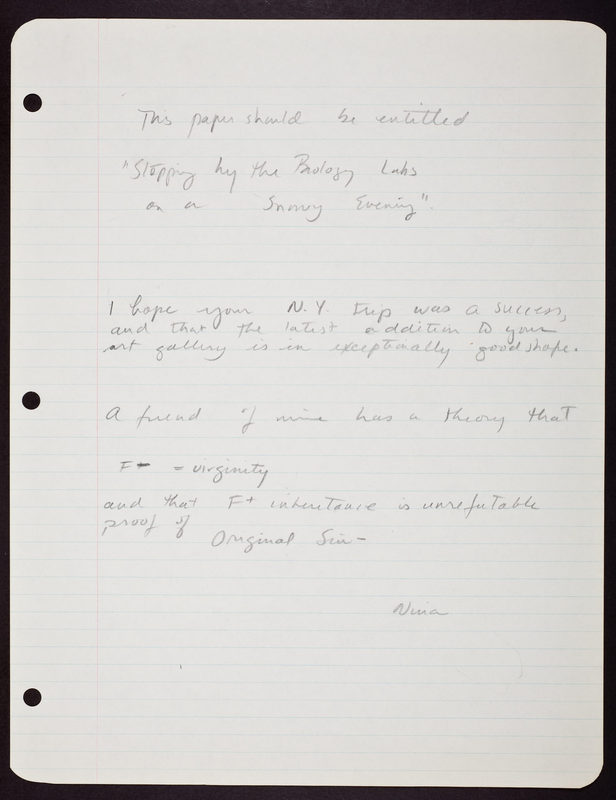 This paper should be entitled
"Stopping by the Biology Labs
on a Snowy Evening".
I hope your N.Y. trip was a success,
and that the latest addition to your
art gallery is in exceptionally good shape.
A friend of mine has a theory that
F- = virginity
and that F+ inheritance is unrefutable
proof of
Original Sin-
Nina